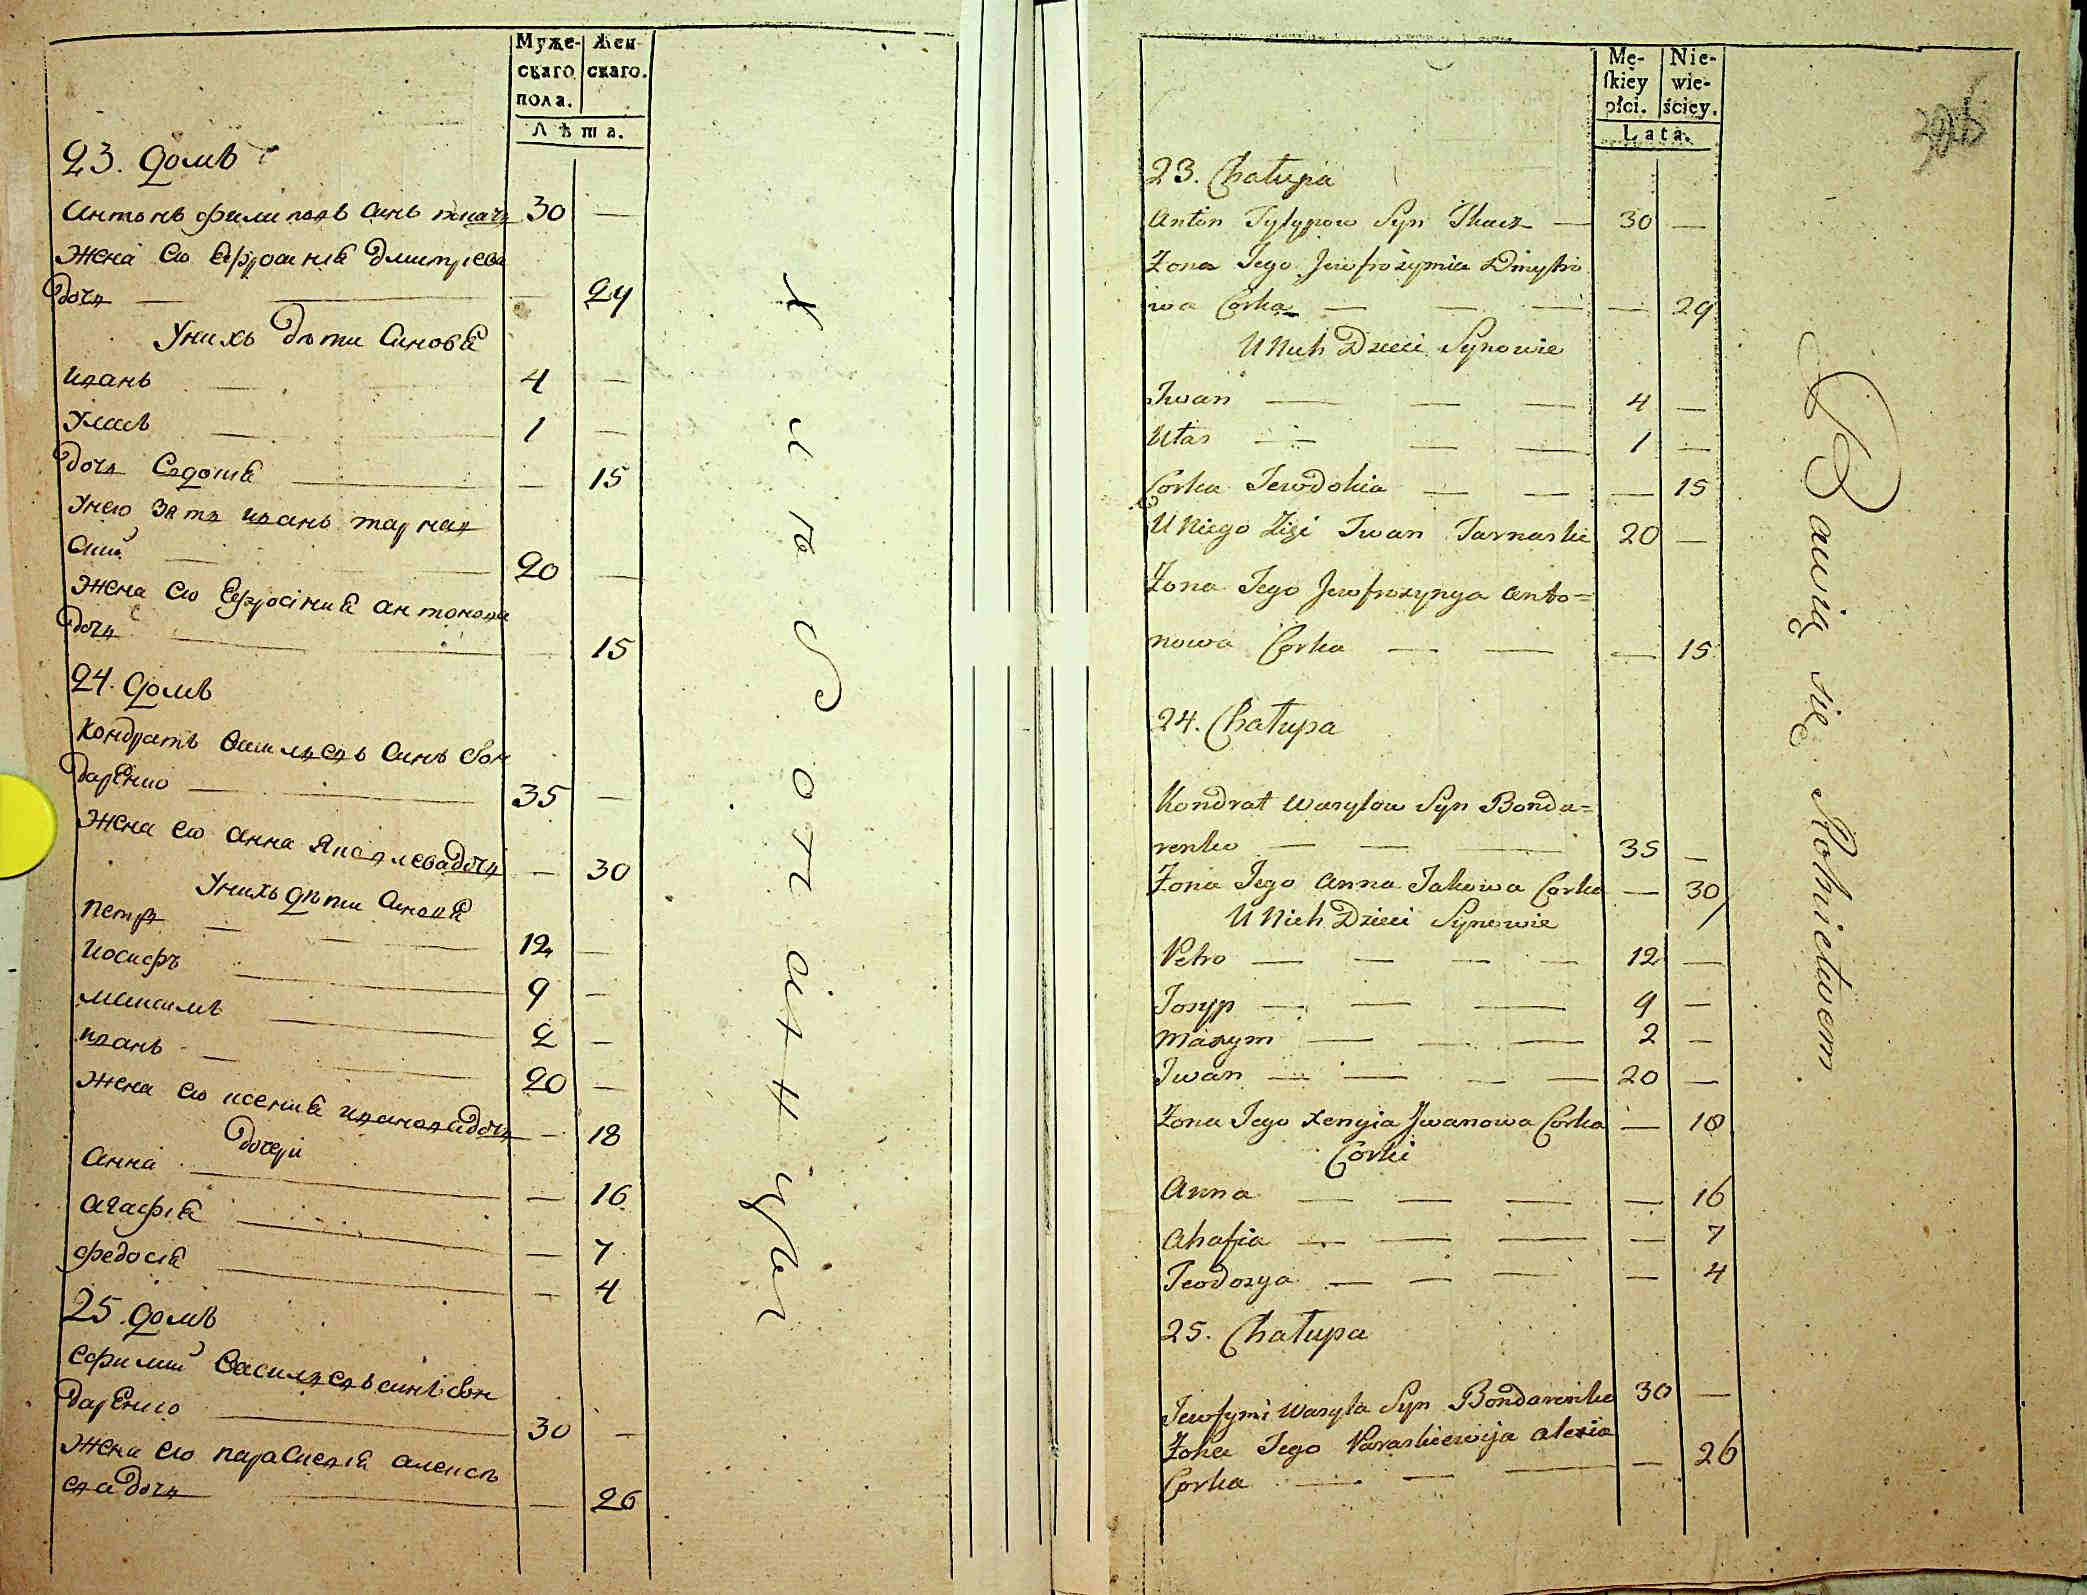 Муже-
скаго
пола.
Жен
скаго.
Лѣта.
23. домъ
Антонъ филиповъ синъ ткачъ 30 —
Жена его Ефросинія дмитріева
дочъ — — — 29
Унихъ дѣти Синовя
иванъ — — 4 —
Уласъ — — 1 —
дочъ Евдокія — — 15
Унего зять иванъ тарнав
скій — 20 —
Жена его Ефросинія антонова
дочъ — — — 15
24. домъ
Кондратъ василіевъ синъ бон
даренко — 35 —
Жена его анна Яковлева дочъ — 30
Унихъ дѣти Синовя
петръ — — — 12 —
иосифъ — 9 —
максимъ — 2 —
иванъ — — 20 —
Жена его ксенія иванова дочъ — 18
дочери
Анна — — 16
Агафія — — 7
федосія — — 4
25. домъ
Ефимій василіевъ синъ бон
даренко — 30 —
Жена его параскевія алексѣ
ева дочъ — — 26
хлѣбопашиуи
Mę-
skiey
płci.
Nie-
wie-
ściey.
Lata.
23. Chałupa
Anton Fylypow Syn Tkacz — 30 —
Żona Jego Jewfrozymia Dmytro
wa Corka — — — — 29
U Nich Dzieci Synowie
Iwan — — — 4 —
Ułas — — — 1 —
Corka Jewdokia — — — 15
U Niego Zięć Iwan Tarnaski 20 —
Żona Jego Jewfrozynya Anto=
nowa Corka — — — 15
24. Chałupa
Kondrat Wasylow Syn Bonda=
renko — — — 35 —
Żona Jego Anna Jakowa Corka — 30
U Nich Dzieci Synowie
Petro — — — — 12 —
Josyp — — — 9 —
Maxym — — — 2 —
Iwan — — — — 20 —
Żona Jego Xenyia Iwanowa Corka — 18
Corki
Anna — — — — 16
Ahafia — — — — 7
Teodozya — — — — 4
25. Chałupa
Jewfymi Wasyla Syn Bondarenko 30 —
Żona Jego Paraskiewija Alexia
Corka — — — — 26
Bawią się Rolnictwem